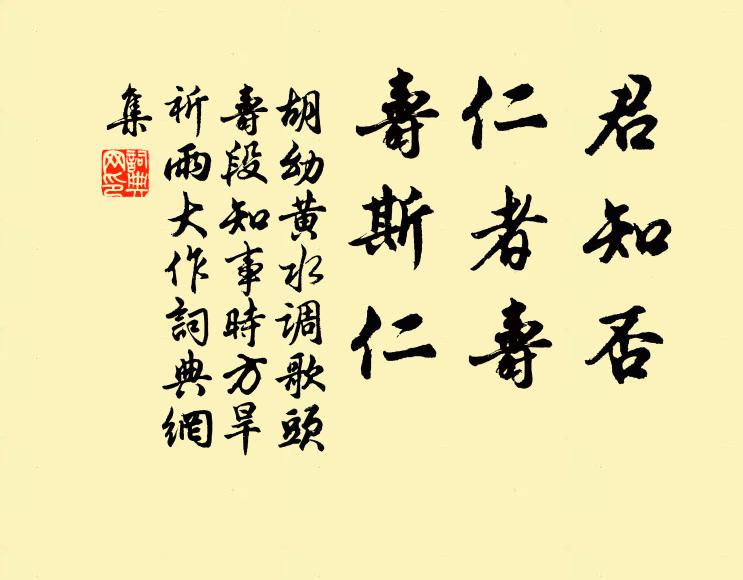 君知否
仁者壽
壽斯仁
胡幼黄水调歌頭
壽段知事時方旱
祈雨大作詞典網
集
詞典
网印